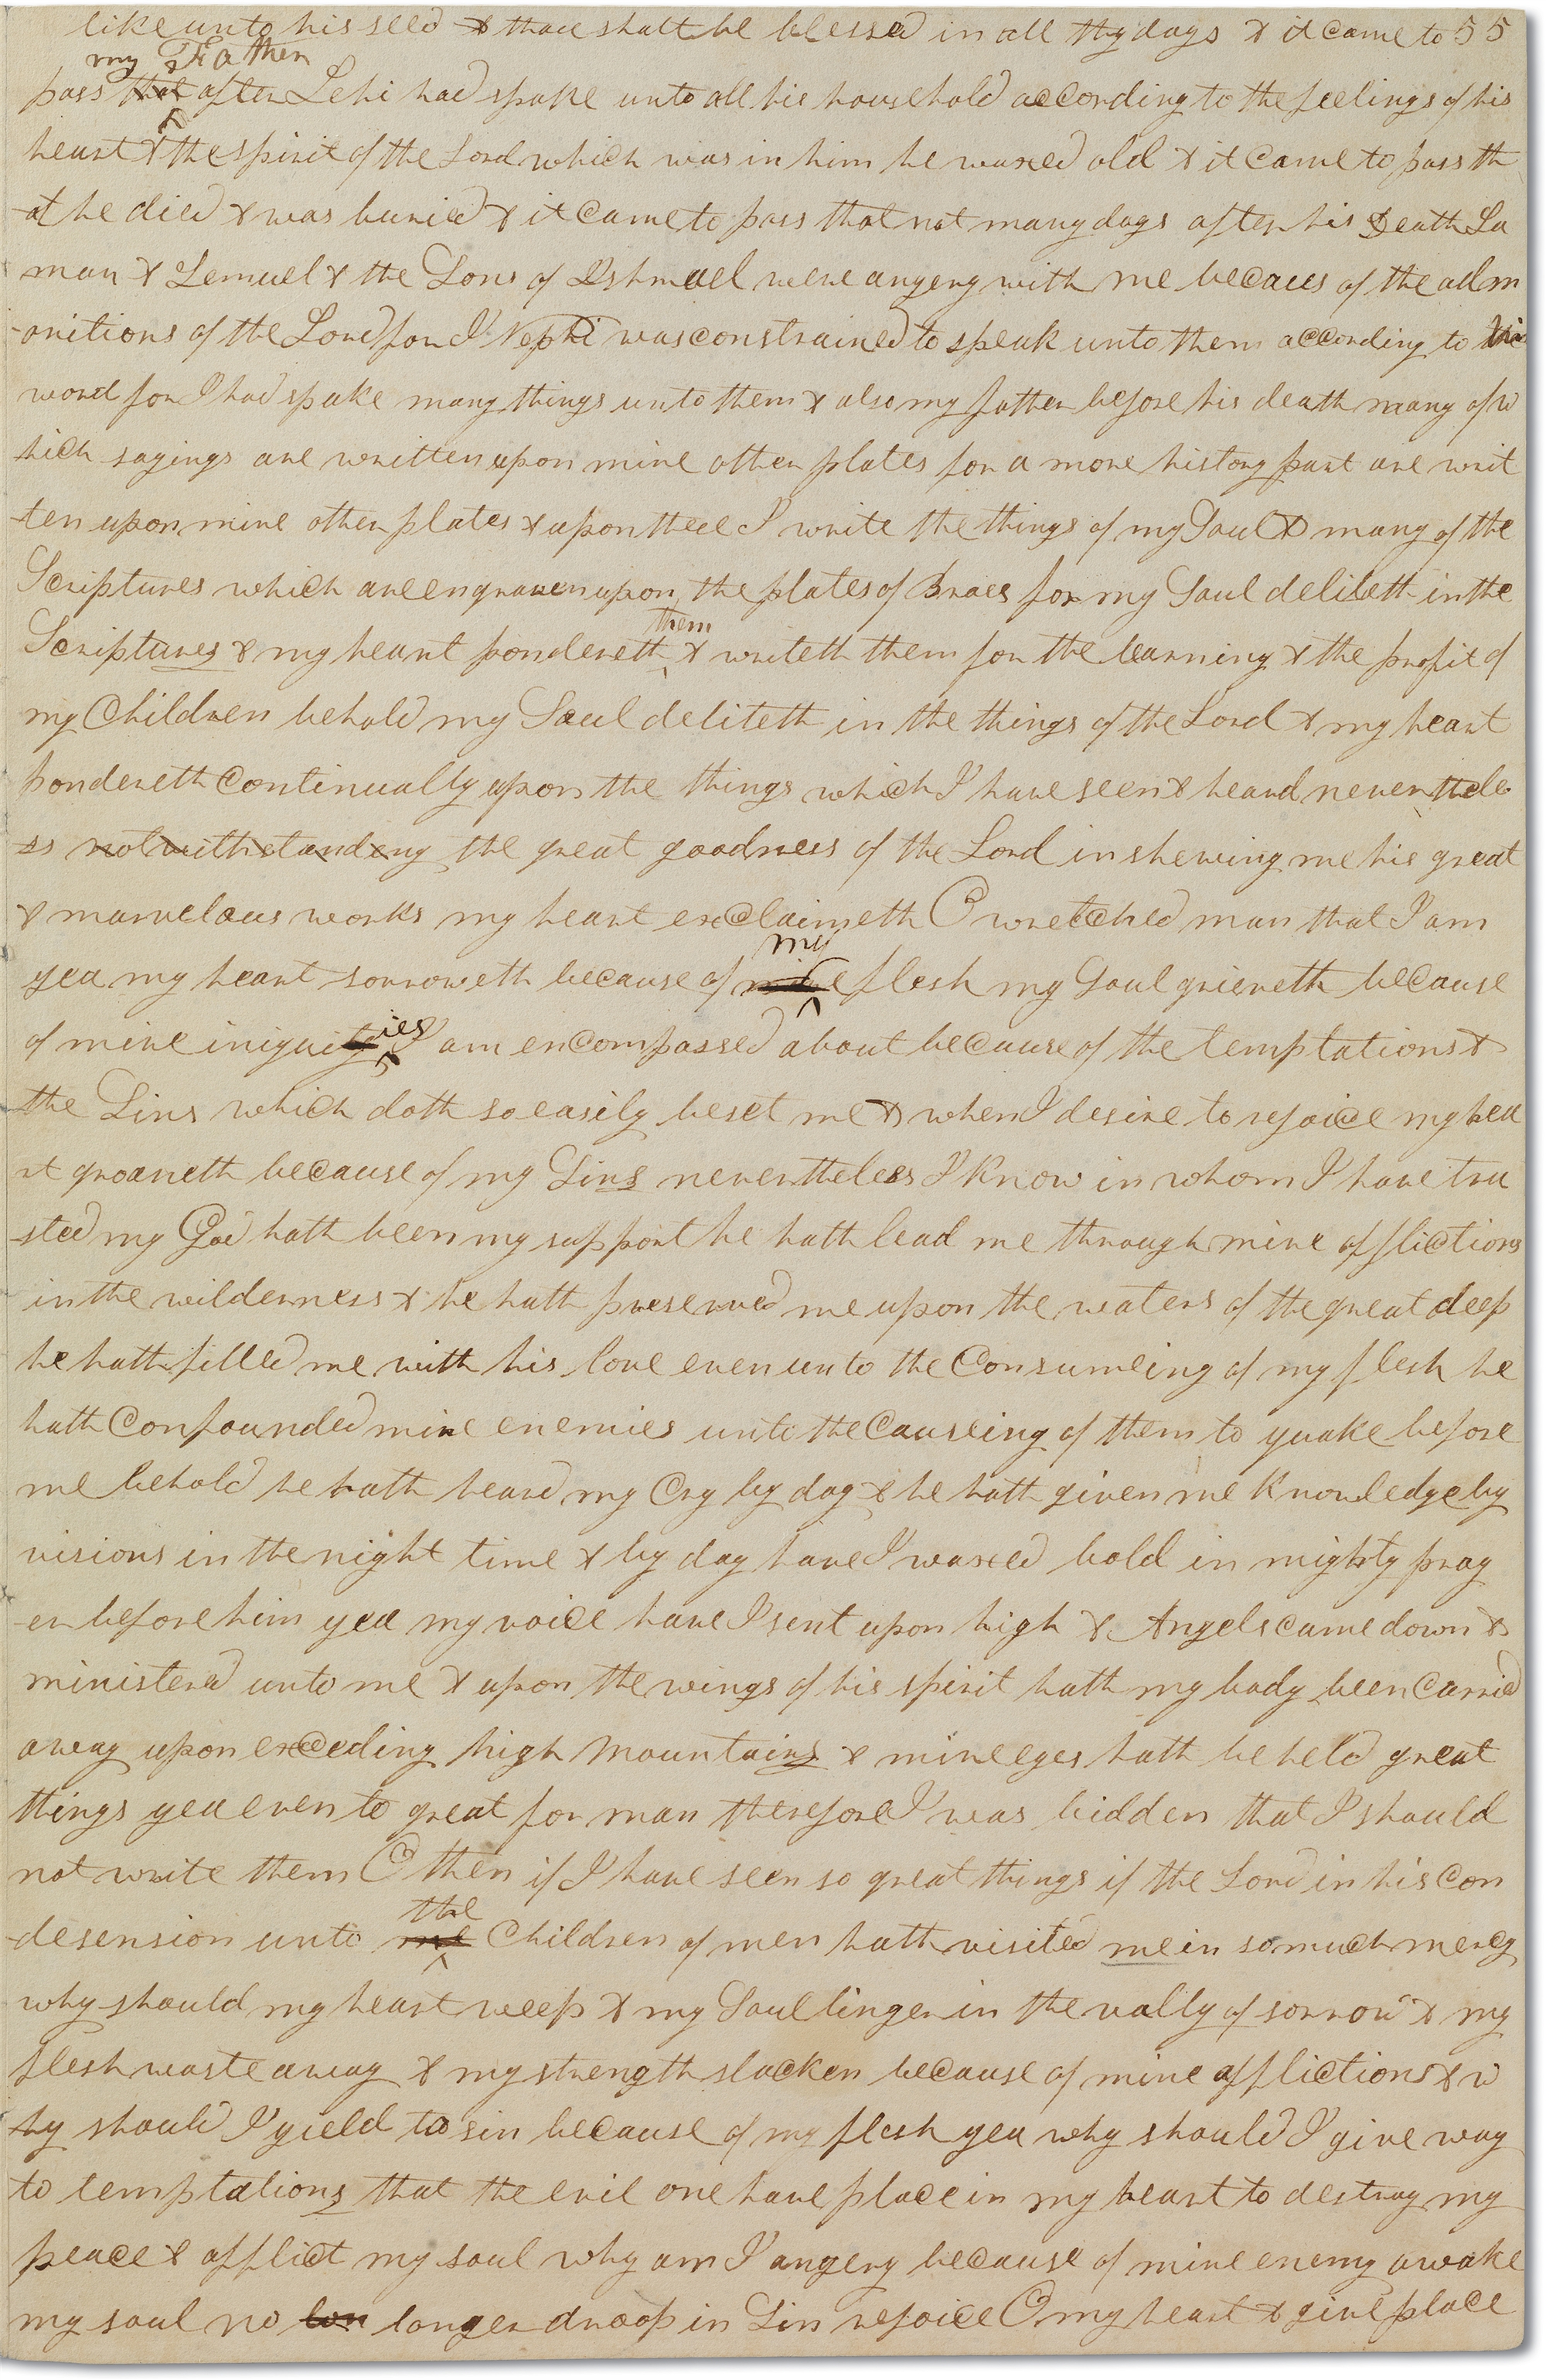 like unto his seed & thou shalt be blessed in all thy days & it came to 55
my Father
pass that after Lehi had spake unto all his household according to the feelings of his
heart & the spirit of the Lord which was in him he waxed old & it came to pass th
-at he died & was buried & it came to pass that not many days after his Death La
man & Lemuel & the Sons of Ishmael were angery with me becaus of the adm
-onitions of the Lord for I Nephi was constrained to speak unto them according to his
word for I had spake many things unto them & also my father before his death many of w
hich sayings are written upon mine other plates for a more history part are writ
-ten upon mine other plates & upon these I write the things of my Soul & many of the
Scriptures which are engraven upon the plates of Brass for my Soul deliteth in the
them
Scriptures & my heart pondereth & writeth them for the learning & the profit of
my Children behold my Soul deliteth in the things of the Lord & my heart
pondereth Continually upon the things which I have seen & heard neverthele
-ss notwithstanding the great goodness of the Lord in shewing me his great
& marvelous works my heart exclaimeth O wretched man that I am
my
yea my heart sorroweth because of mine flesh my Soul grieveth because
ies
of mine iniquity I am encompassed about because of the temptations &
the Sins which doth so easily beset me & when I desire to rejoice my hea
rt groaneth because of my Sins nevertheless I know in whom I have tru
-sted my God hath been my support he hath lead me through mine afflictions
in the wilderness & he hath preserved me upon the waters of the great deep
he hath filled me with his love even unto the Consumeing of my flesh he
hath Confounded mine enemies unto the Causeing of them to quake before
me behold he hath heard my Cry by day & he hath given me Knowledge by
visions in the night time & by day have I waxed bold in mighty pray
-er before him yea my voice have I sent upon high & Angels came down &
ministerd unto me & upon the wings of his spirit hath my body been Carried
away upon exceeding high mountains & mine eyes hath beheld great
things yea even to great for man therefore I was bidden that I should
not write them O then if I have seen so great things if the Lord in his Con
the
-desension unto me Children of men hath visited me in so much mercy
why should my heart weep & my Soul linger in the vally of sorrow & my
flesh waste away & my strength slacken because of mine afflictions & w
-hy should I yield to sin because of my flesh yea why should I give way
to temptations that the evil one have place in my heart to destroy my
peace & afflict my soul why am I angery because of mine enemy awake
my soul no lon longer droop in Sin rejoice O my heart & give place